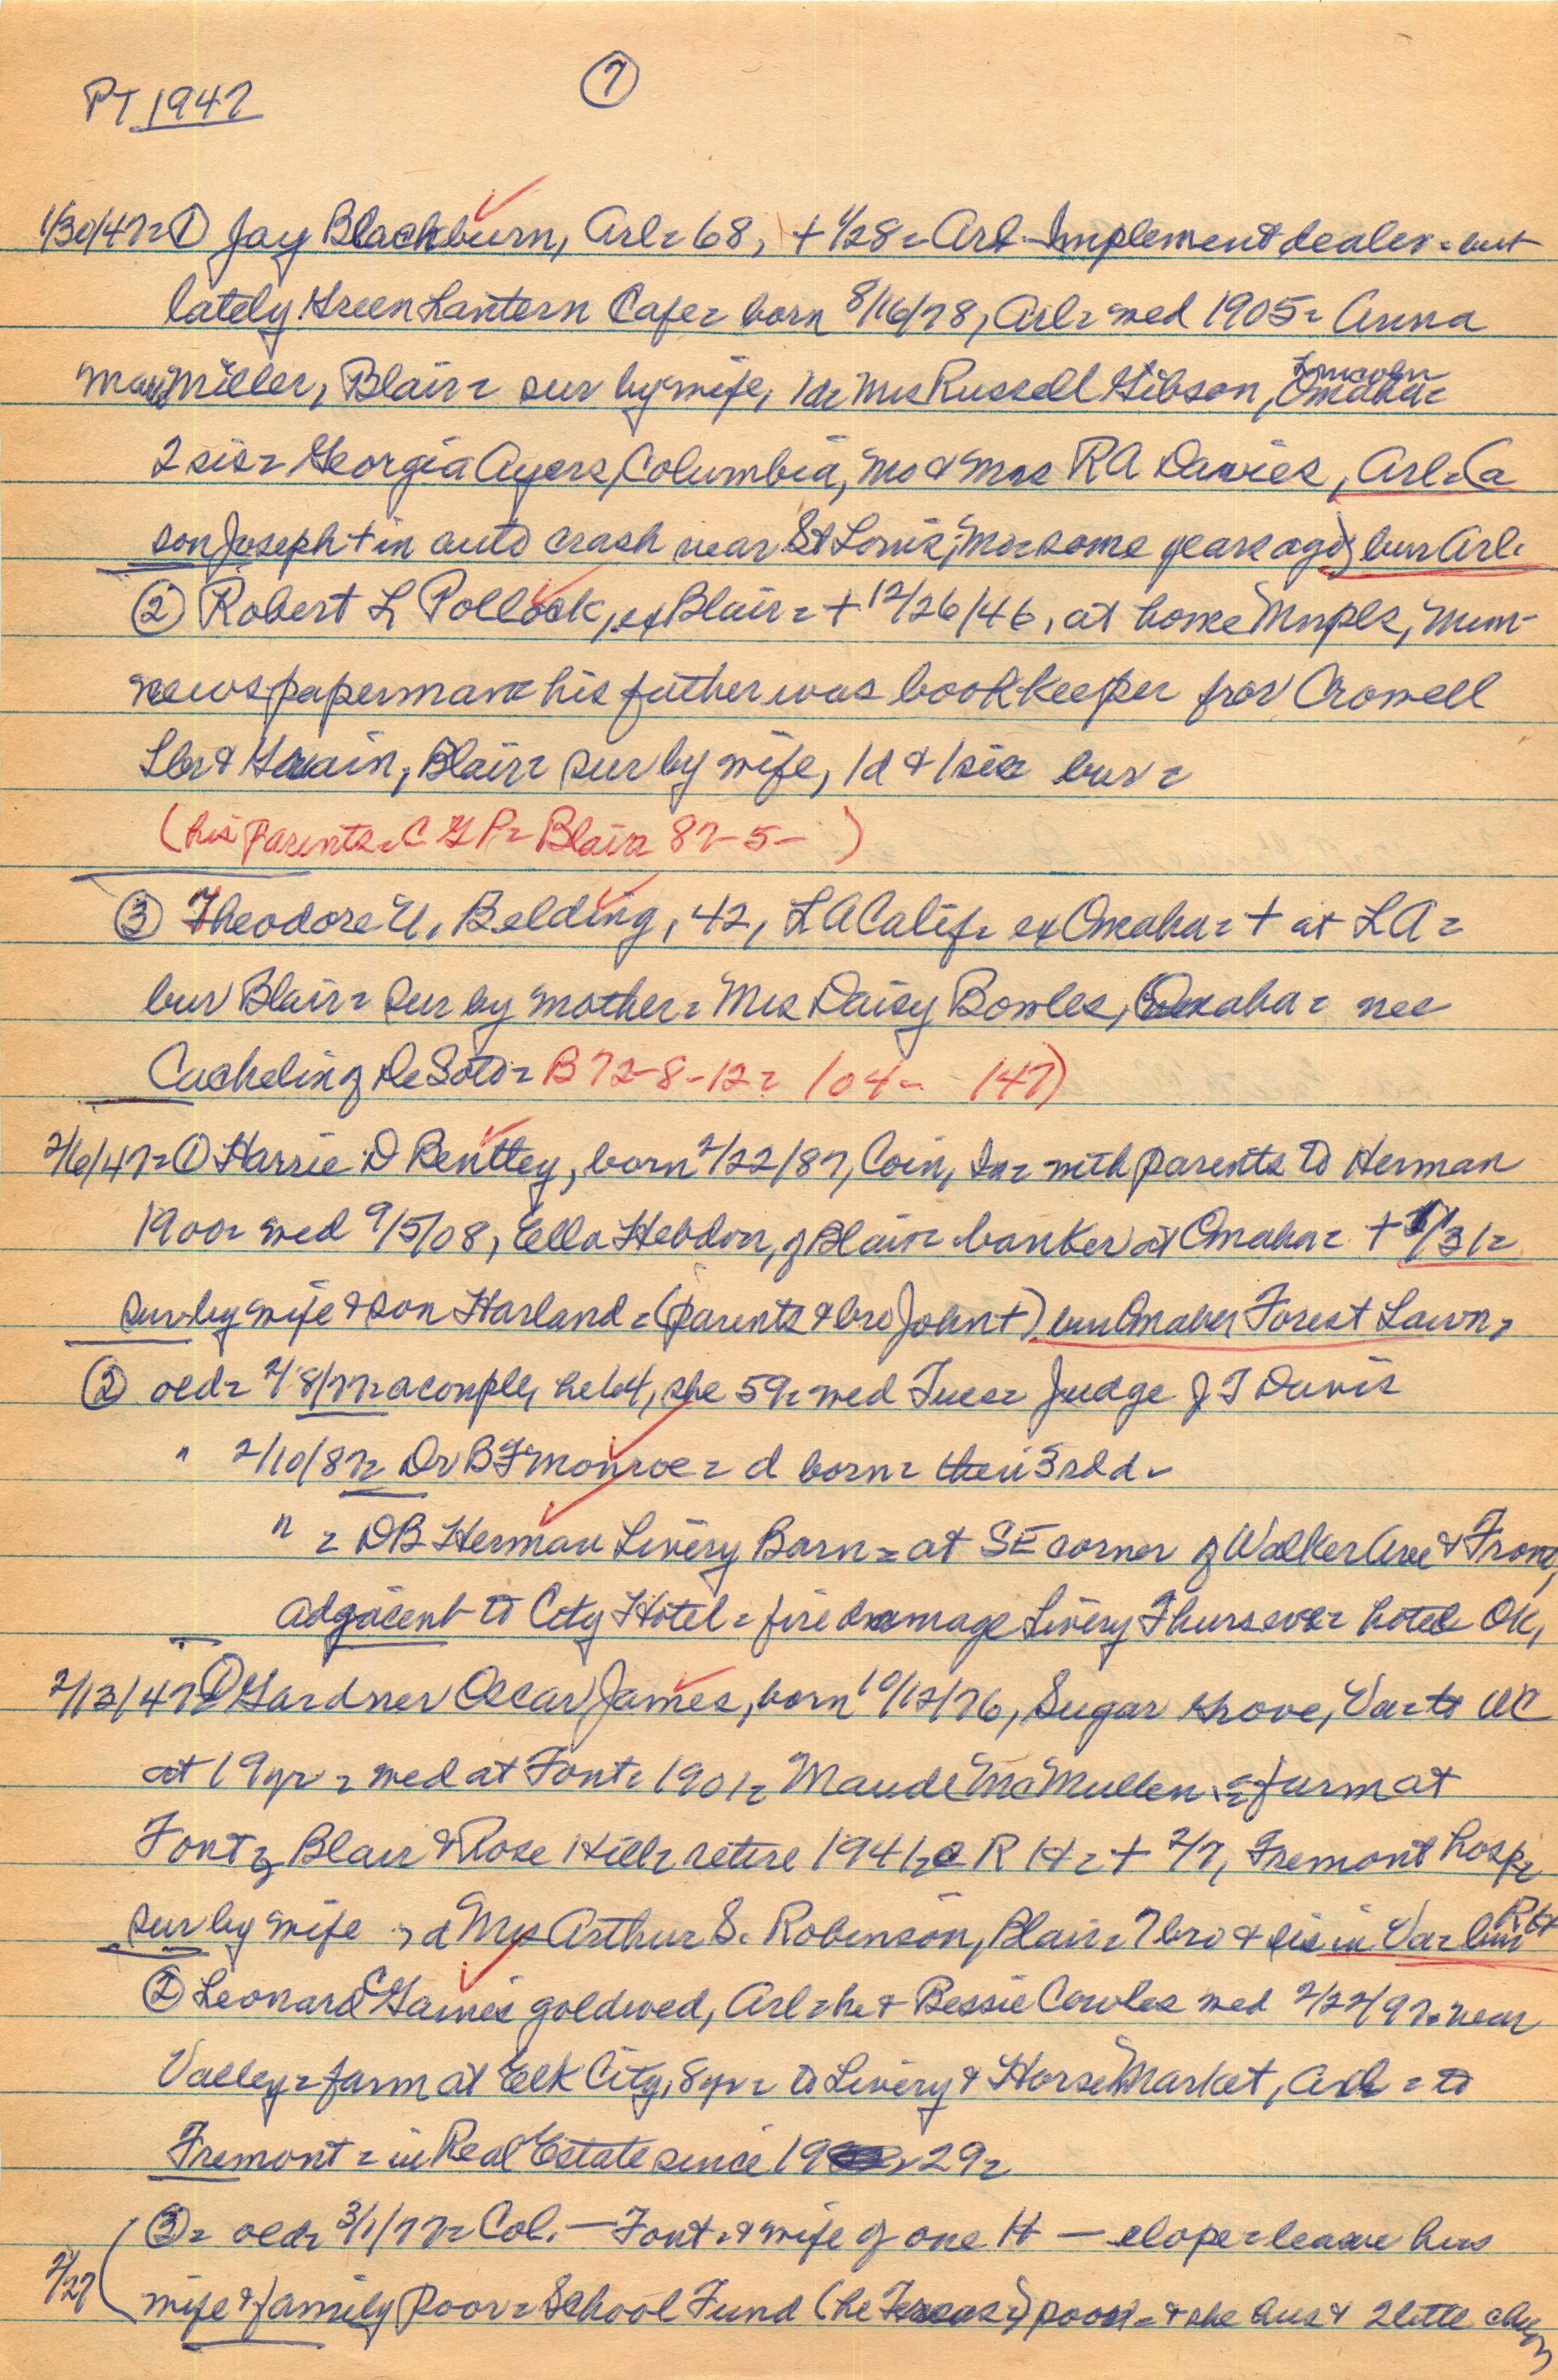 PT 1947
7
1/30/47= ① Jay Blackburn, Arl= 68, + 1/28= Arl- Implement dealer= but
lately Green Lantern Cafe= born 8/16/78, Arl= med 1905= Anna
May Miller, Blair= sur by wife, 1d= Mrs Russell Gibson, Omaha= Lincoln
2 sis= Georgia Ayers, Columbia, Mo & Mrs RA Davies, Arl= (a
son Joseph + in auto crash near St Louis, Mo= some years ago) bur Arl.
② Robert L Pollock, ex Blair= + 12/26/46, at home Mnpls, Minn-
newspaperman= his father was bookkeeper for Crowell
Lbr & Grain, Blair= sur by wife, 1d & 1 sis= bur=
(his parents= C G P= Blair 87-5- )
③ Theodore U. Belding, 42, LA Calif= ex Omaha= + at LA=
bur Blair= sur by mother= Mrs Daisy Bowles, Omaha= nee
Cachelin of DeSoto= B 72-8-12= (04- 47)
2/6/47= ① Harrie D Benttey, born 2/22/87, Coin, Ia= with parents to Herman
1900= med 9/5/08, Ella Hebdon, of Blair= banker at Omaha= + 1/31=
sur by wife & son Harland= (parents & bro John +) bur Omaha Forest Lawn,
② oed= 2/8/77= a couple, he 64, she 59= med Tues= Judge J T Davis
" 2/10/87= Dr B F Monroe= d born= their 3rd d-
" = DB Herman Livery Barn= at SE corner of Walker Ave & Front,
adjacent to City Hotel= fire damage Livery Thurs eve= hotel OK,
2/13/47= ① Gardner Oscar James, born 10/12/76, Sugar Grove, Va= to WC
at 19 yr= med at Font= 1901= Maude McMullen = farm at
Font, Blair & Rose Hill= retire 1941= R H= + 2/7, Fremont hosp=
sur by wife, d Mrs Arthur S. Robinson, Blair= 7 bro & sis in Va= bur R H
② Leonard C Gaines goldwed, Arl= he & Bessie Cowles med 2/22/97= near
Valley= farm at Elk City, 8 yr= to Livery & Horse Market, Arl= to
Fremont= in Real Estate since 19 29=
2/27 (③= oed= 3/1/77= Col. — Font= & wife of one H — elope= leave his
wife & family poor= School Fund (he Treas=) poor= & she hus & 2 little chn